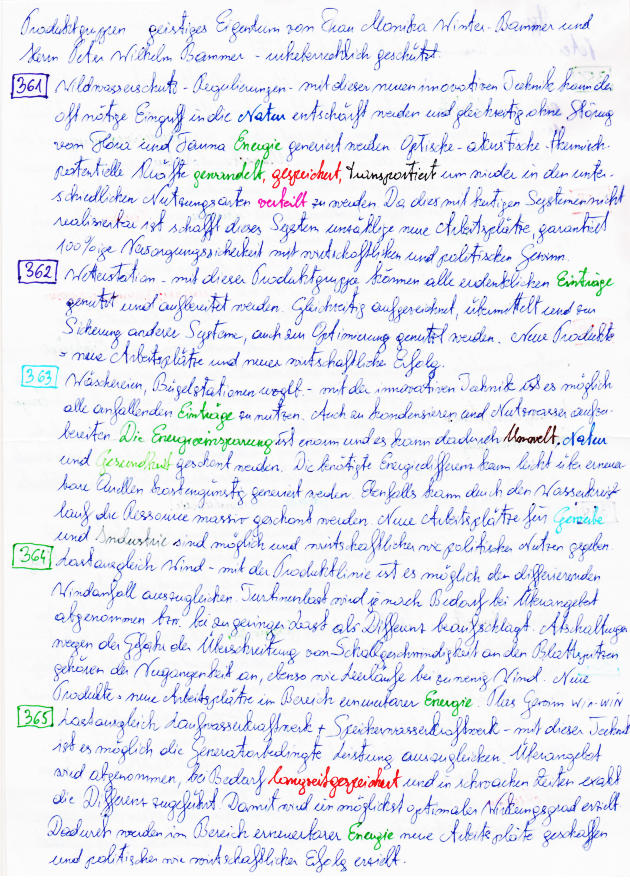 Produktgruppen geistiges Eigentum von Frau Monika Winter-Bammer und
Herrn Peter Wilhelm Bammer - urheberrechtlich geschützt.
361 Wildwasserschutz - Regulierungen - mit dieser neuen innovativen Technik kann der
oft nötige Eingriff in die Natur entschärft werden und gleichzeitig ohne Störung
von Flora und Fauna Energie generiert werden. Optische - akustische - thermisch-
potentielle Kräfte gewandelt, gespeichert, transportiert um wieder in den unter-
schiedlichen Nutzungsarten verteilt zu werden. Da dies mit heutigen Systemen nicht
realisierbar ist schafft dieses System unzählige neue Arbeitsplätze, garantiert
100%ige Versorgungssicherheit mit wirtschaftlichen und politischen Gewinn.
362 Wetterstation - mit dieser Produktgruppe können alle erdenklichen Einträge
genutzt und aufbereitet werden. Gleichzeitig aufgezeichnet, übermittelt und zur
Sicherung anderer Systeme, auch zur Optimierung genutzt werden. Neue Produkte
= neue Arbeitsplätze und neuer wirtschaftlicher Erfolg.
363 Wäschereien, Bügelstationen - mit der innovativen Technik ist es möglich
alle anfallenden Einträge zu nutzen. Auch zu kondensieren und Nutzwasser aufzu-
bereiten. Die Energieeinsparung ist enorm und es kann dadurch Umwelt, Natur
und Gesundheit geschont werden. Die benötigte Energiedifferenz kann leicht über erneuer-
bare Quellen kostengünstig generiert werden. Ebenfalls kann durch den Wasserkreis-
lauf die Ressource massiv geschont werden. Neue Arbeitsplätze für Gewerbe
und Industrie sind möglich und wirtschaftlicher wie politischer Nutzen gegeben.
364 Lastausgleich Wind - mit der Produktlinie ist es möglich den differierenden
Windanfall auszugleichen. Turbinenlast wird je nach Bedarf bei Überangebot
abgenommen bzw. bei zu geringer Last als Differenz beaufschlagt. Abschaltungen
wegen der Gefahr der Überschreitung von Schallgeschwindigkeit an den Blattspitzen
gehören der Vergangenheit an, ebenso wie Leerläufe bei zu wenig Wind. Neue
Produkte = neue Arbeitsplätze im Bereich erneuerbarer Energie. Plus Gewinn WIN-WIN
365 Lastausgleich Laufwasserkraftwerk + Speicherwasserkraftwerk - mit dieser Technik
ist es möglich die Generatorbedingte Leistung auszugleichen. Überangebot
wird abgenommen, bei Bedarf langzeitgespeichert und in schwachen Zeiten exakt
die Differenz zugeführt. Damit wird ein möglichst optimaler Wirkungsgrad erzielt.
Dadurch werden im Bereich erneuerbarer Energie neue Arbeitsplätze geschaffen
und politischer wie wirtschaftlicher Erfolg erzielt.